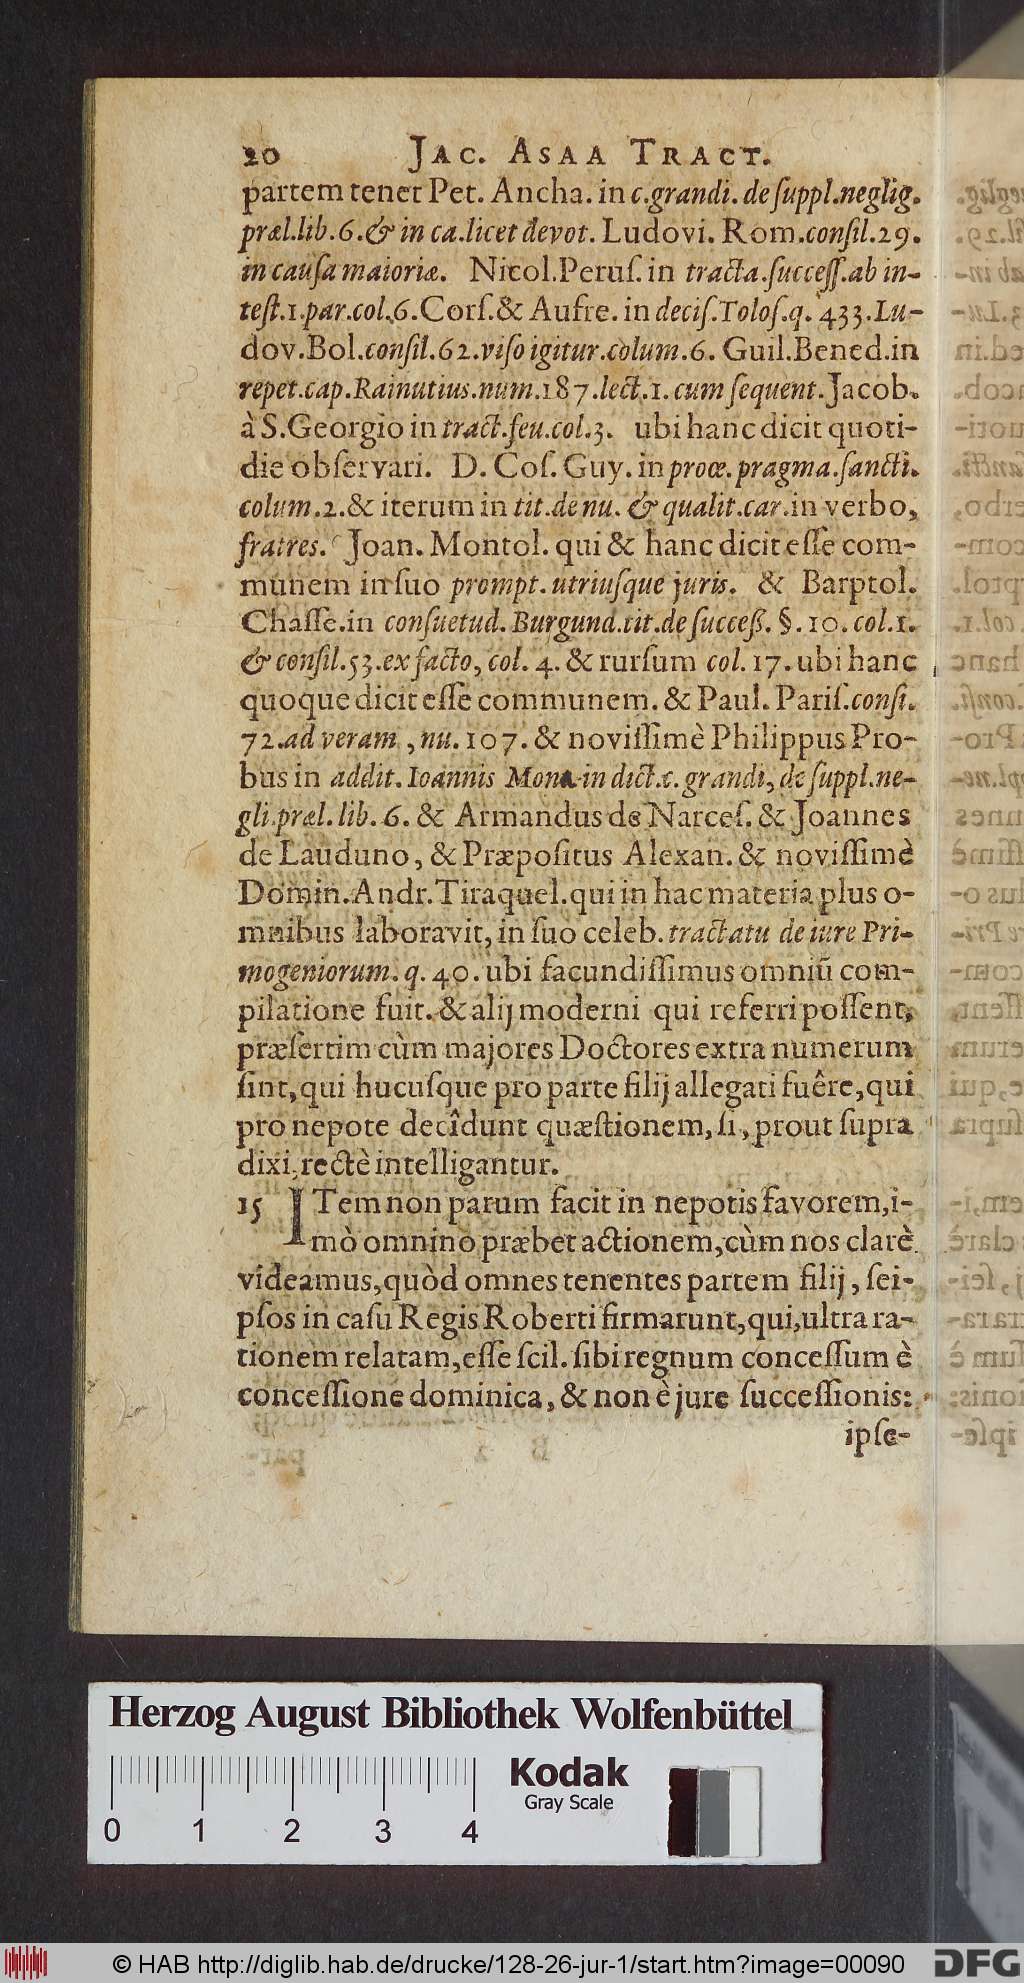 20 JAC. ASAA TRACT.
partem tenet Pet. Ancha. in c.grandi. de ſuppl.neglig.
præl.lib.6.& in ca.licet devot. Ludovi. Rom.conſil.29.
in cauſa maioriæ. Nicol.Peruſ. in tracta.ſucceſſ.ab in-
teſt.1.par.col.6.Corſ.& Aufre. in deciſ.Toloſ.q. 433.Lu-
dov.Bol.conſil.62.viſo igitur.colum.6. Guil.Bened.in
repet.cap.Rainutius.num.187.lect.1. cum ſequent.Jacob.
à S.Georgio in tract.feu.col.3. ubi hanc dicit quoti-
die obſervari. D. Coſ. Guy. in proœ. pragma.ſancti.
colum.2.& iterum in tit.de nu. & qualit.car.in verbo,
fratres. Joan. Montol. qui & hanc dicit eſſe com-
munem in ſuo prompt. utriuſque juris. & Barptol.
Chaſſe.in conſuetud. Burgund.tit.de ſucceß. §. 10. col.1.
& conſil.53.ex facto, col. 4. & rurſum col. 17. ubi hanc
quoque dicit eſſe communem. & Paul. Pariſ.conſi.
72.ad veram , nu. 107. & noviſſimè Philippus Pro-
bus in addit. Ioannis Mona in dict.c. grandi, de ſuppl.ne-
gli.præl. lib. 6. & Armandus de Narceſ. & Joannes
de Lauduno, & Præpoſitus Alexan. & noviſſimè
Domin. Andr. Tiraquel. qui in hac materia plus o-
mnibus laboravit, in ſuo celeb. tractatu de iure Pri-
mogeniorum. q. 40. ubi facundiſſimus omniū com-
pilatione fuit. & alij moderni qui referri poſſent,
præſertim cùm majores Doctores extra numerum
ſint, qui hucuſque pro parte filij allegati fuêre, qui
pro nepote decîdunt quæſtionem, ſi, prout ſupra
dixi, rectè intelligantur.
15 ITem non parum facit in nepotis favorem, i-
mò omnino præbet actionem, cùm nos clarè
videamus, quòd omnes tenentes partem filij, ſei-
pſos in caſu Regis Roberti firmarunt, qui, ultra ra-
tionem relatam, eſſe ſcil. ſibi regnum conceſſum è
conceſſione dominica, & non è jure ſucceſſionis:
ipſe-
Herzog August Bibliothek Wolfenbüttel
Kodak
Gray Scale
0 1 2 3 4
© HAB http://diglib.hab.de/drucke/128-26-jur-1/start.htm?image=00090
DFG